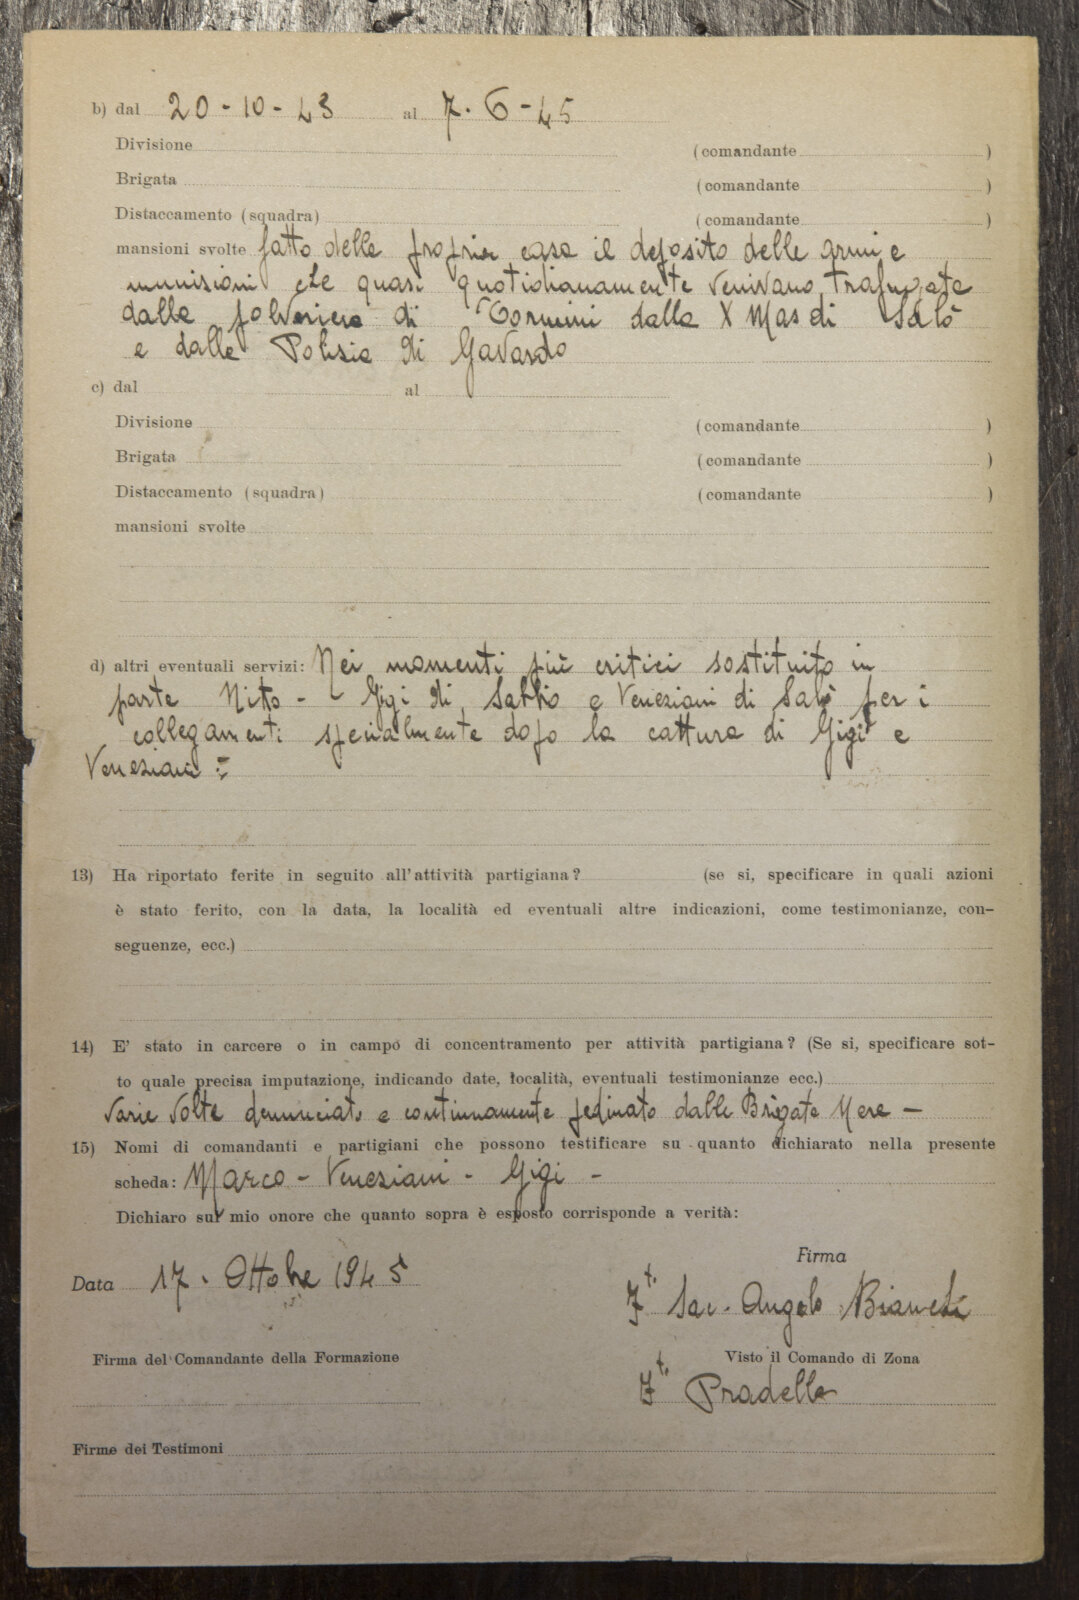 b) dal 20-10-43 al 7-6-45
Divisione (comandante )
Brigata (comandante )
Distaccamento (squadra) (comandante )
mansioni svolte fatto della propria casa il deposito delle armi e
munisioni che quasi quotidianamente venivano trafugate
dalla polveriera di Tormini dalla X Mas di Salò
e dalla Polisia di Gavardo
c) dal al
Divisione (comandante )
Brigata (comandante )
Distaccamento (squadra) (comandante )
mansioni svolte
d) altri eventuali servizi: Nei momenti più critici sostituito in
parte Nitto - Gigi di Sabbio e Venesiani di Salò per i
collegamenti specialmente dopo la cattura di Gigi e
Venesiani =
13) Ha riportato ferite in seguito all'attività partigiana? (se si, specificare in quali azioni
è stato ferito, con la data, la località ed eventuali altre indicazioni, come testimonianze, con-
seguenze, ecc.)
14) E' stato in carcere o in campo di concentramento per attività partigiana? (Se si, specificare sot-
to quale precisa imputazione, indicando date, località, eventuali testimonianze ecc.)
Varie volte denunciato e continuamente pedinato dalle Brigate Nere -
15) Nomi di comandanti e partigiani che possono testificare su quanto dichiarato nella presente
scheda: Marco - Venesiani - Gigi -
Dichiaro sul mio onore che quanto sopra è esposto corrisponde a verità:
Firma
Data 17. Ottobre 1945
Ft. Sac. Angelo Bianchi
Firma del Comandante della Formazione Visto il Comando di Zona
Ft. Pradella
Firme dei Testimoni